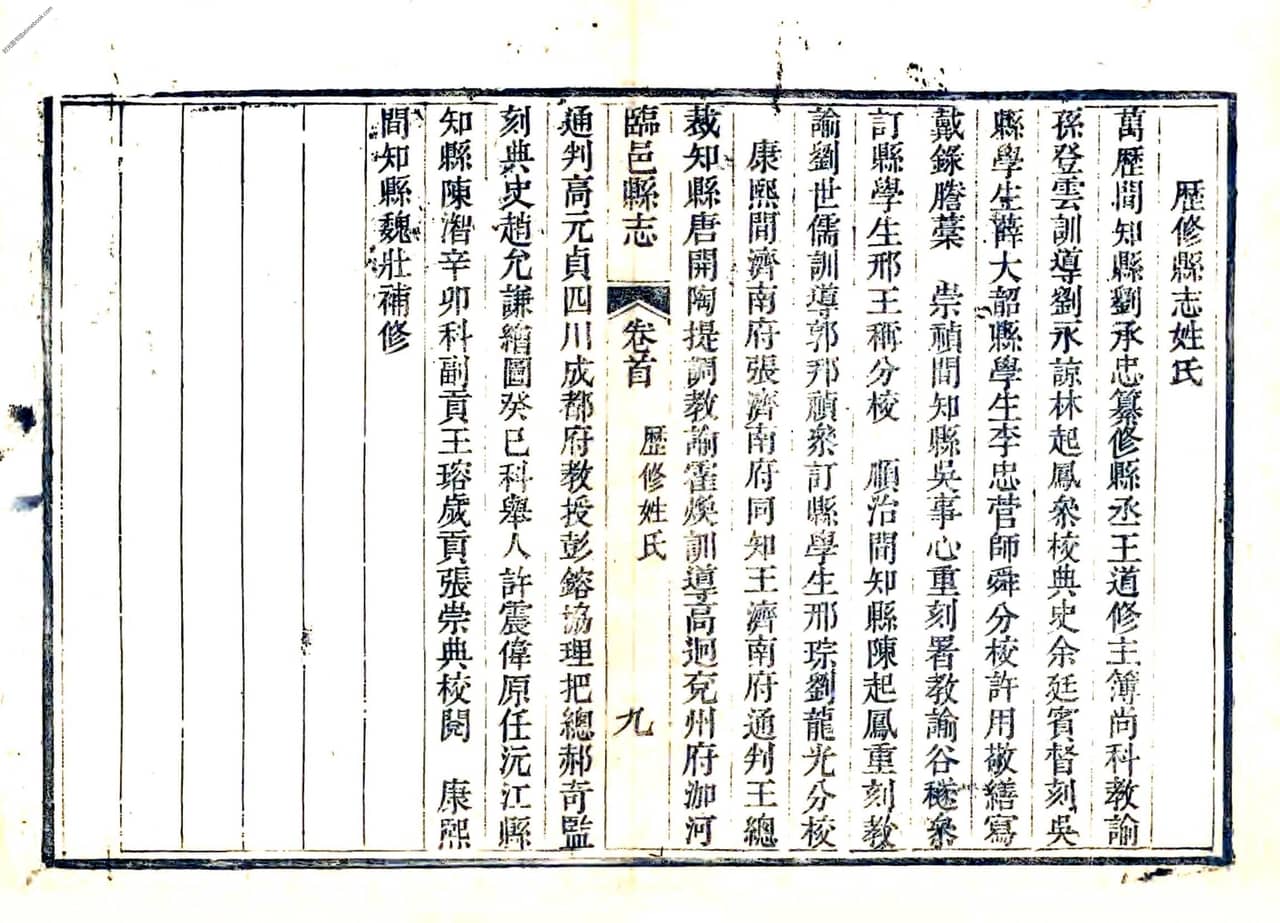 歷修縣志姓氏
萬歷間知縣劉承忠纂修縣丞王道修主簿尚科教諭
孫登雲訓導劉永諒林起鳳叅校典史余廷賓督刻吳
縣學生薛大韶縣學生李忠菅師舜分校許用敬繕寫
戴錄謄藁 崇禎間知縣吳事心重刻署教諭谷𥢧叅
訂縣學生邢王稱分校 順治間知縣陳起鳳重刻教
諭劉世儒訓導郭邦禎叅訂縣學生邢琮劉龍光分校
康熙間濟南府張濟南府同知王濟南府通判王總
裁知縣唐開陶提調教諭霍煥訓導高迥兖州府泇河
臨邑縣志 卷首 歷修姓氏 九
通判高元貞四川成都府教授彭鎔協理把總郝奇監
刻典史趙允謙繪圖癸巳科舉人許震偉原任沅江縣
知縣陳潪辛卯科副貢王瑢歲貢張崇典校閱 康熙
間知縣魏壯補修